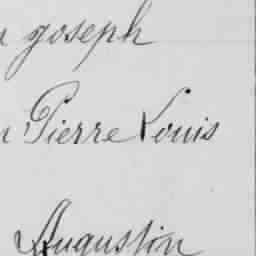 joseph
Pierre Louis
Augustin